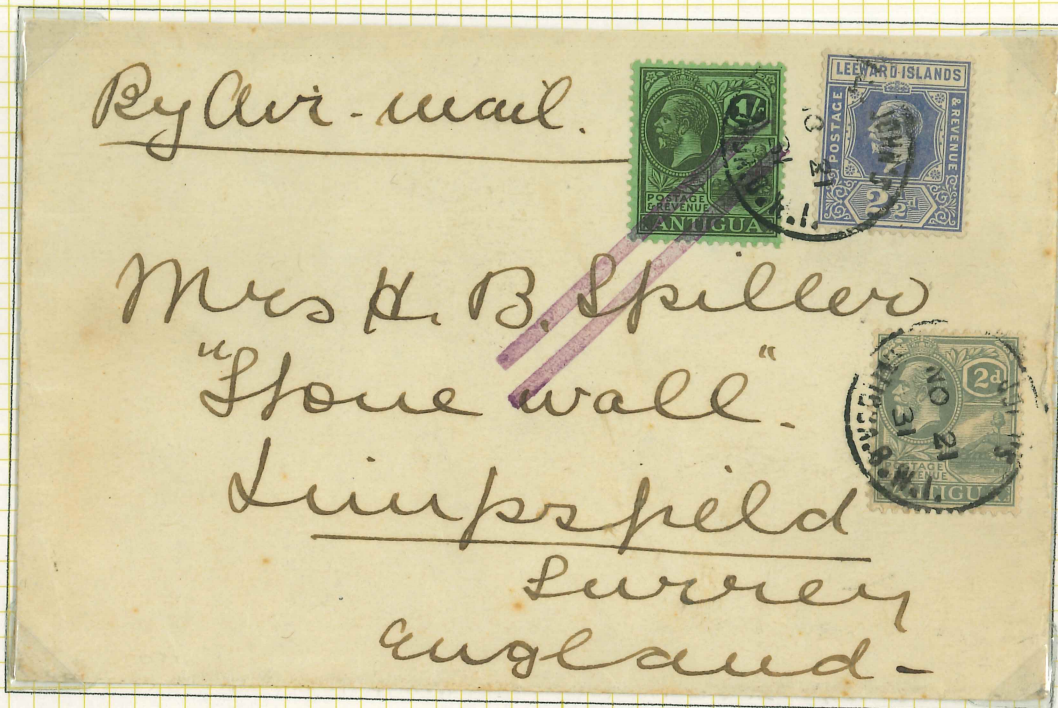 By Air-mail.
1/-
POSTAGE
& REVENUE
ANTIGUA
LEEWARD·ISLANDS
POSTAGE
& REVENUE
2½d
NO 21
B.W.I.
Mrs H. B. Spiller
"Stone wall".
Limpsfield
Surrey
England-
2d
POSTAGE
& REVENUE
ANTIGUA
NO 21
31
ANTIGUA.B.W.I.